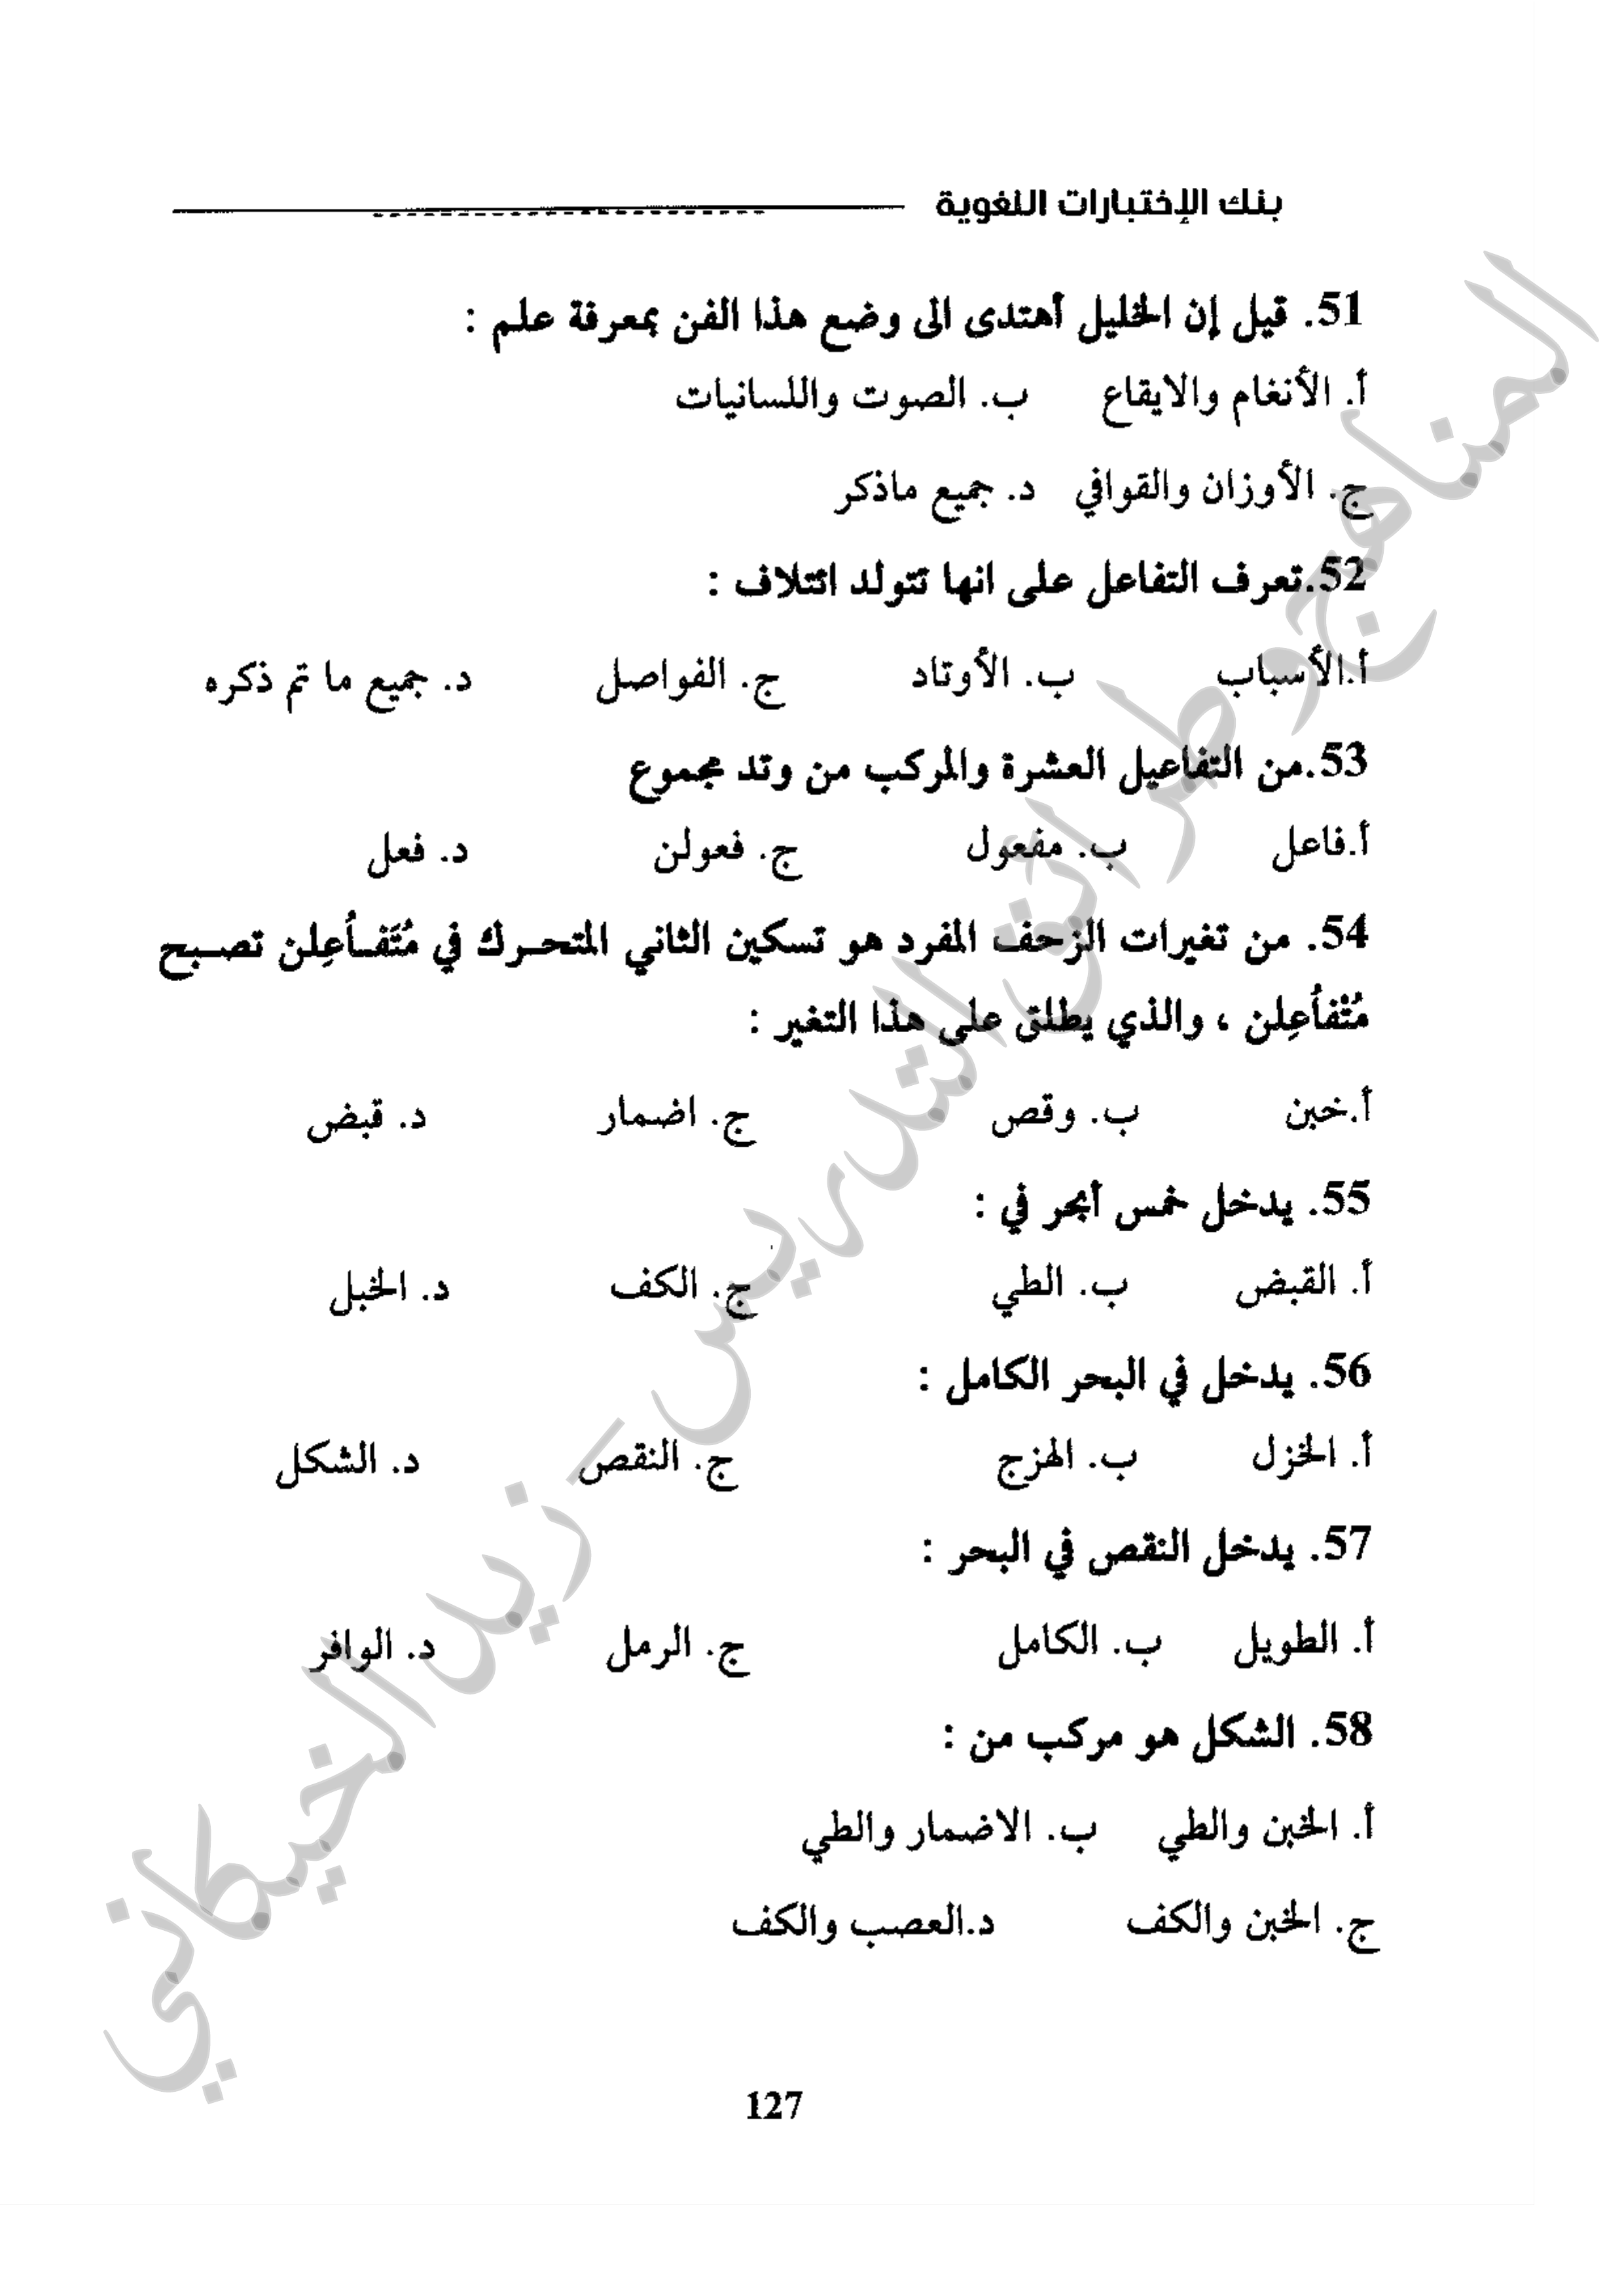 بنك الإختبارات اللغوية
51. قيل إن الخليل أهتدى الى وضع هذا الفن بمعرفة علم :
أ. الأنغام والايقاع ب. الصوت واللسانيات
ج. الأوزان والقوافي د. جميع ماذكر
52.تعرف التفاعل على انها تتولد ائتلاف :
أ.الأسباب ب. الأوتاد ج. الفواصل د. جميع ما تم ذكره
53.من التفاعيل العشرة والمركب من وتد مجموع
أ.فاعل ب. مفعول ج. فعولن د. فعل
54. من تغيرات الزحف المفرد هو تسكين الثاني المتحـرك في مُتَفـأعِلن تصـبح
مُتْفأعِلن ، والذي يطلق على هذا التغير :
أ.خبن ب. وقص ج. اضمار د. قبض
55. يدخل خمس أبحر في :
أ. القبض ب. الطي ج. الكف د. الخبل
56. يدخل في البحر الكامل :
أ. الخزل ب. الهزج ج. النقص د. الشكل
57. يدخل النقص في البحر :
أ. الطويل ب. الكامل ج. الرمل د. الوافر
58. الشكل هو مركب من :
أ. الخبن والطي ب. الاضمار والطي
ج. الخبن والكف د.العصب والكف
127
المناهج وطرائق التدريس _ زيد الخيكاني